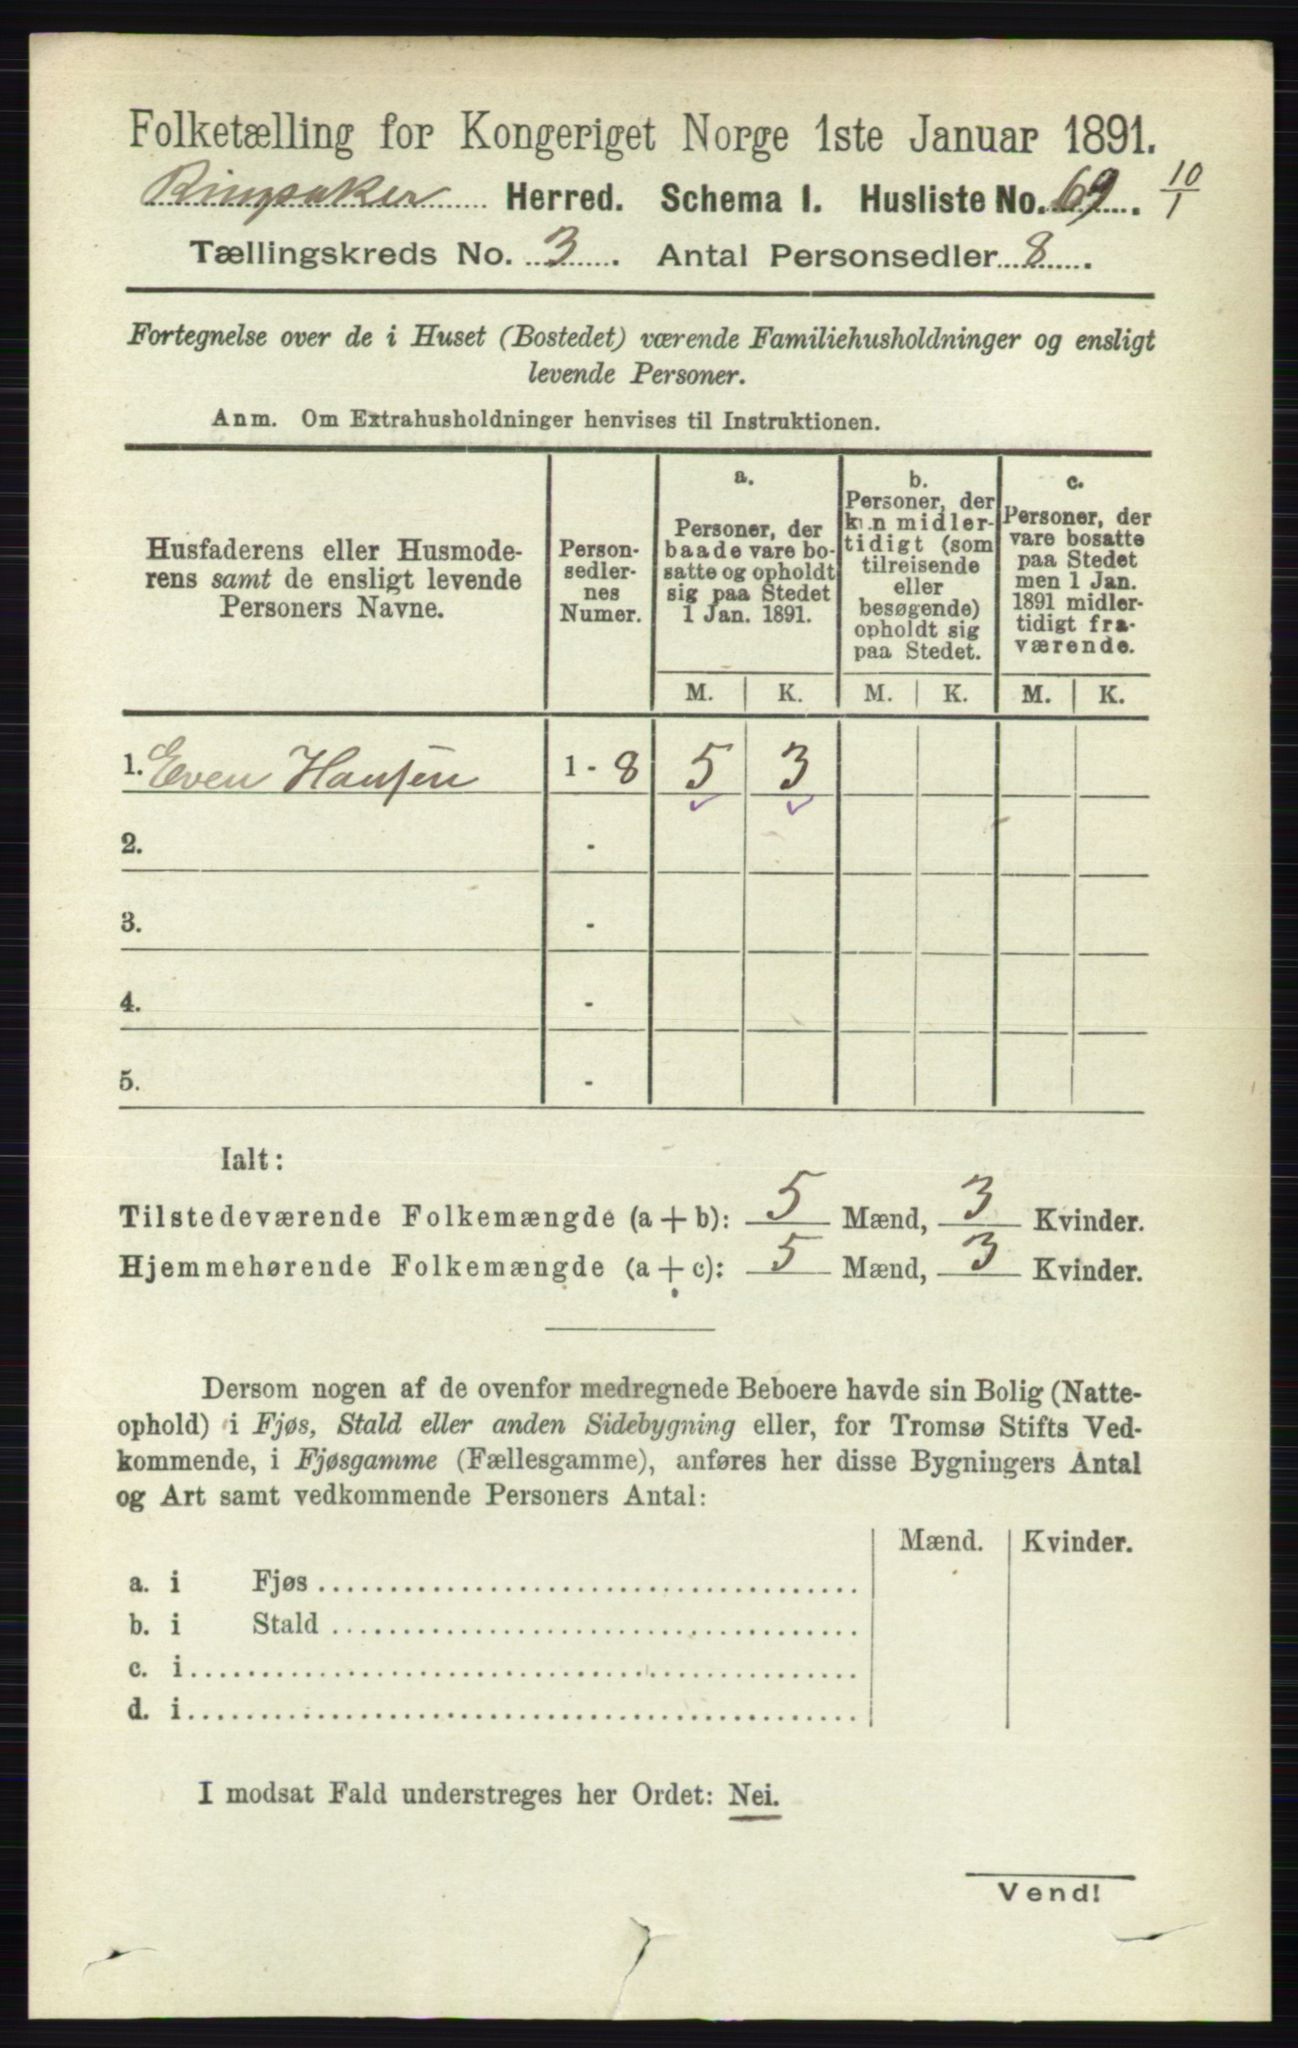 Folketælling for Kongeriget Norge 1ste Januar 1891.
Ringsaker Herred. Schema I. Husliste No. 69. 10/1
Tællingskreds No. 3. Antal Personsedler 8.
Fortegnelse over de i Huset (Bostedet) værende Familiehusholdninger og ensligt
levende Personer.
Anm. Om Extrahusholdninger henvises til Instruktionen.
Husfaderens eller Husmode-
rens samt de ensligt levende
Personers Navne.
Person-
sedler-
nes
Numer.
a.
Personer, der
baade vare bo-
satte og opholdt
sig paa Stedet
1 Jan. 1891.
b.
Personer, der
kun midler-
tidigt (som
tilreisende
eller
besøgende)
opholdt sig
paa Stedet.
c.
Personer, der
vare bosatte
paa Stedet
men 1 Jan.
1891 midler-
tidigt fra-
værende.
M. K. M. K. M. K.
1. Even Hansen 1 - 8 5 3
2. -
3. -
4. -
5. -
Ialt:
Tilstedeværende Folkemængde (a + b): 5 Mænd, 3 Kvinder.
Hjemmehørende Folkemængde (a + c): 5 Mænd, 3 Kvinder.
Dersom nogen af de ovenfor medregnede Beboere havde sin Bolig (Natte-
ophold) i Fjøs, Stald eller anden Sidebygning eller, for Tromsø Stifts Ved-
kommende, i Fjøsgamme (Fællesgamme), anføres her disse Bygningers Antal
og Art samt vedkommende Personers Antal:
Mænd. Kvinder.
a. i Fjøs
b. i Stald
c. i
d. i
I modsat Fald understreges her Ordet: Nei.
Vend!